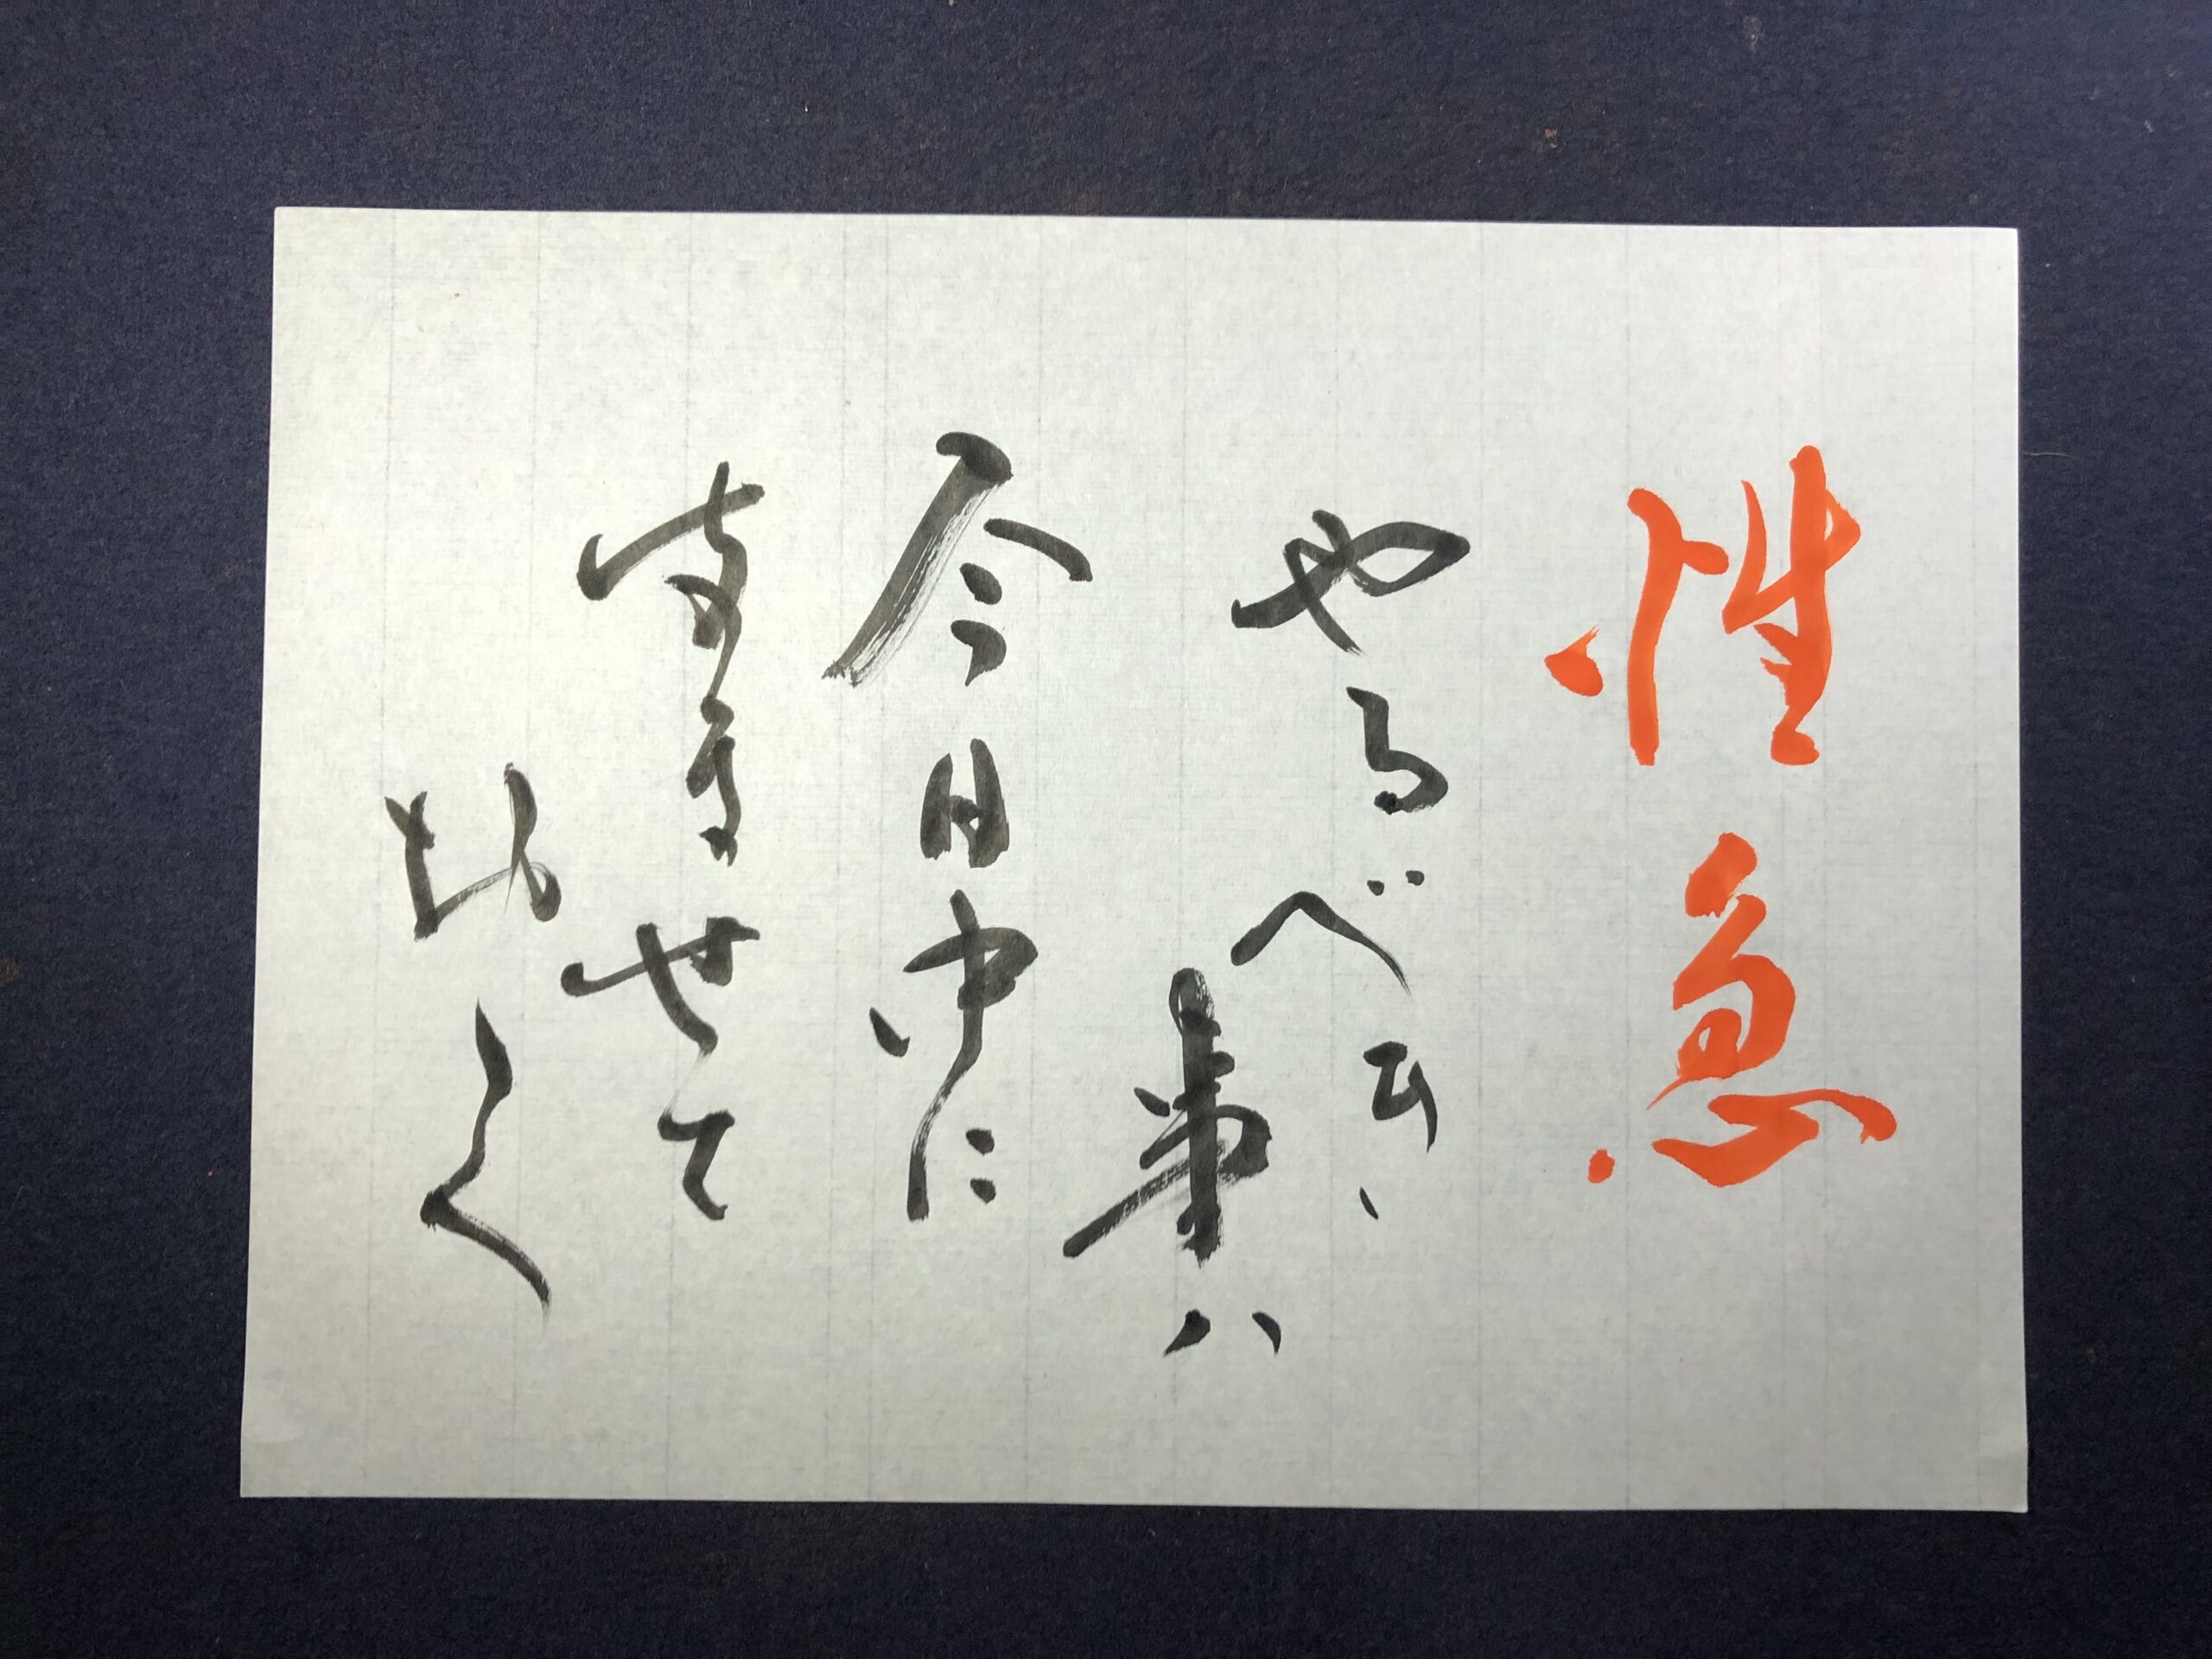 性急
やるべき
事ハ
今日中に
すませて
おく